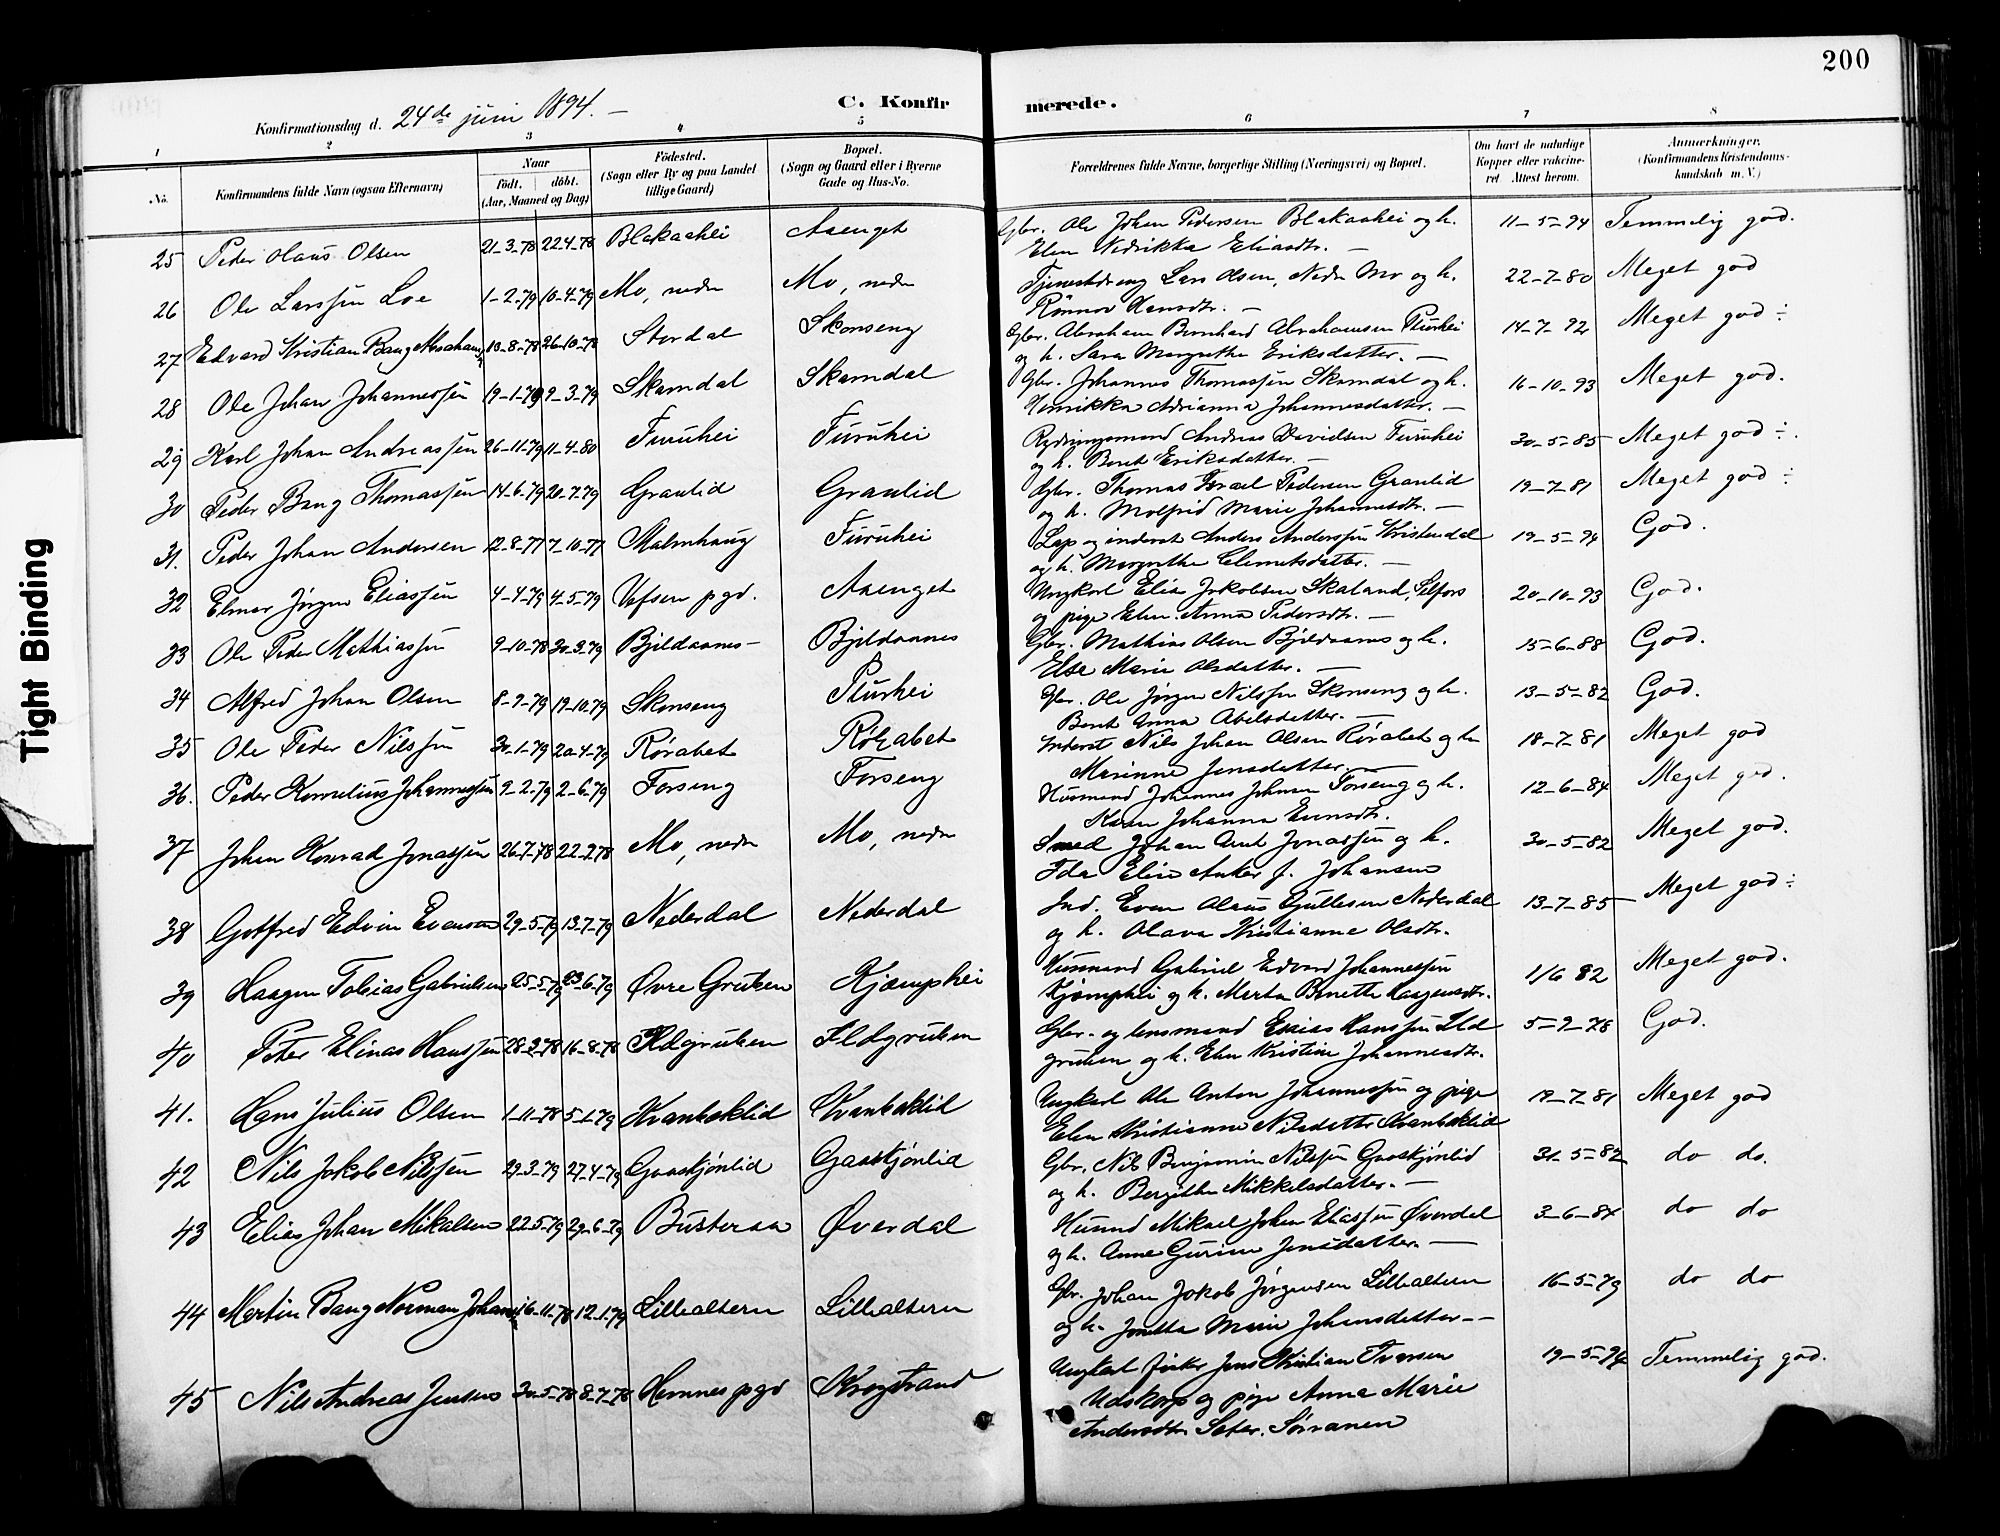 200
C. Konfirmerede.
Konfirmationsdag d. 24de juni 1894. –
1 2 3 4 5 6 7 8
No. Konfirmandens fulde Navn (ogsaa Efternavn) Naar født. døbt. (Aar, Maaned og Dag) Fødested. (Sogn eller By og paa Landet tillige Gaard) Bopæl. (Sogn og Gaard eller i Byerne Gade og Hus-No. Forældrenes fulde Navne, borgerlige Stilling (Næringsvei) og Bopæl. Om havt de naturlige Kopper eller vaccineret. Attest herom. Anmærkninger. (Konfirmandens Kristendomskundskab m. V.)
25 Peder Olaus Olsen 21-3-78 22-4-78 Blakaahei Aaenget Gbr. Ole Johan Pedersen Blakaahei og h. 11-5-94 Temmelig god.
Elen Nedrikka Eliasdtr. –
26 Ole Larssen Loe 1-2-79 10-4-79 Mo, nedre Mo, nedre Tjenestedreng Lars Olsen, Nedre Mo og h. 22-7-80 Meget god
Rønnov Hansdtr. –
27 Edvard Kristian Bang 10-8-78 26-10-78 Stordal Skonseng Gbr. Abraham Bernhard Abrahamsen Plurhei 14-7-92 Meget god ÷
og h. Sara Margrethe Eriksdatter. –
28 Ole Johan Johannessen 19-1-79 9-3-79 Skamdal Skamdal Gbr. Johannes Thomassen Skamdal og h. 16-10-93 Meget god.
Henrikka Adrianna Johannesdatter. –
29 Karl Johan Andreassen 26-11-79 11-4-80 Furuhei Furuhei Rydningsmand Andreas Davidsen Furuhei 30-5-85 Meget god ÷.
og h. Beret Eriksdatter. –
30 Peder Bang Thomassen 14-6-79 20-7-79 Granlid Granlid Gbr. Thomas Israel Pedersen Granlid 19-7-81 Meget god ÷
og h. Molfrid Marie Johannesdtr. –
31. Peder Johan Andersen 12-8-77 7-10-77 Malmhaug Furuhei Lap og inderst Anders Anderssen Kristendal 19-5-94 God.
og h. Margrethe Clemetsdatter. –
32 Elmer Jørgen Eliassen 4-4-79 4-5-79 Vefsen pgd. Aaenget Ungkarl Elia Jakobsen Skaland, Selfors 20-10-93 God.
og pige Elen Anna Pedersdtr. –
33 Ole Peder Mathiassen 9-10-78 30-3-79 Bjildaanes – Bjildaanes Gbr. Mathias Olsen Bjildaanes og h. 15-6-88 God.
Else Marie Olsdatter. –
34 Alfred Johan Olsen 8-9-79 19-10-79 Skonseng Plurhei Gbr. Ole Jørgen Nilssen Skonseng og h. 13-5-82 God.
Beret Anna Abelsdatter. –
35 Ole Peder Nilssen 30-1-79 20-4-79 Rørabet Rørabet Inderst Nils Johan Olsen Rørabet og h 18-7-81 Meget god
Marinne Jensdatter. –
36. Peder Kornelius Johannessen 9-2-79 2-6-79 Forseng Forseng Husmand Johannes Johnsen Forseng og h. 12-6-84 Meget god.
Karen Johanna Evensdtr.
37 Johan Konrad Jonassen 26-7-78 22-9-78 Mo, nedre Mo, nedre Smed Johan Arnt Jonassen og h. 30-5-82 Meget god.
Ida Elise Anker f. Johansen
38 Gotfred Edvin Evensen 29-5-79 13-7-79 Nederdal Nederdal Ind. Even Olaus Gullesen Nederdal 13-7-85 Meget god ÷
og h. Olava Kristianne Olsdtr.
39 Haagen Tobias Gabrielsen 25-5-79 23-6-79 Øvre Gruben Kjæmphei Husmand Gabriel Edvard Johannessen 1/6 82 Meget god.
Kjæmphei og h. Marta Benette Haagensdtr.
40 Peter Elinas Hanssen 28-2-78 16-8-78 Ildgruben Ildgruben Gbr. og lensmand Esaias Hanssen Ild 5-9-78 God.
gruben, og h. Elen Kristine Johannesdtr.
41. Hans Julius Olsen 1-11-78 5-1-79 Kvanbaklid Kvanbaklid Ungkarl Ole Anton Johannessen og pige 19-7-81 Meget god
Elen Kristianne Nilsdatter Kvanbaklid
42 Nils Jakob Nilssen 29-3-79 27-4-79 Gaaskjønlid Gaaskjønlid Gbr. Nils Benjamin Nilssen Gaaskjønlid 31-5-82 do do.
og h. Bergithe Mikkelsdatter. –
43 Elias Johan Mikalsen 22-5-79 29-6-79 Busteraa Øverdal Husmd Mikael Johan Eliassen Øverdal 3-6-84 do do
og h. Anne Gurine Jonsdatter. –
44 Martin Bang Norman Johansen 16-11-78 12-1-79 Lillealteren Lillealteren Gbr. Johan Jakob Jørgensen Lillealteren 16-5-79 do do
og h. Jonetta Marie Johansdatter – –
45 Nils Andreas Jensen 30-5-78 8-7-78 Hemnes pgd Krogstrand Ungkarl fisker Jens Kristian Iversen 19-5-94 Temmelig god.
Udskarp og pige Anna Marie
Andersdtr. Sæter. Sørranen
Tight Binding